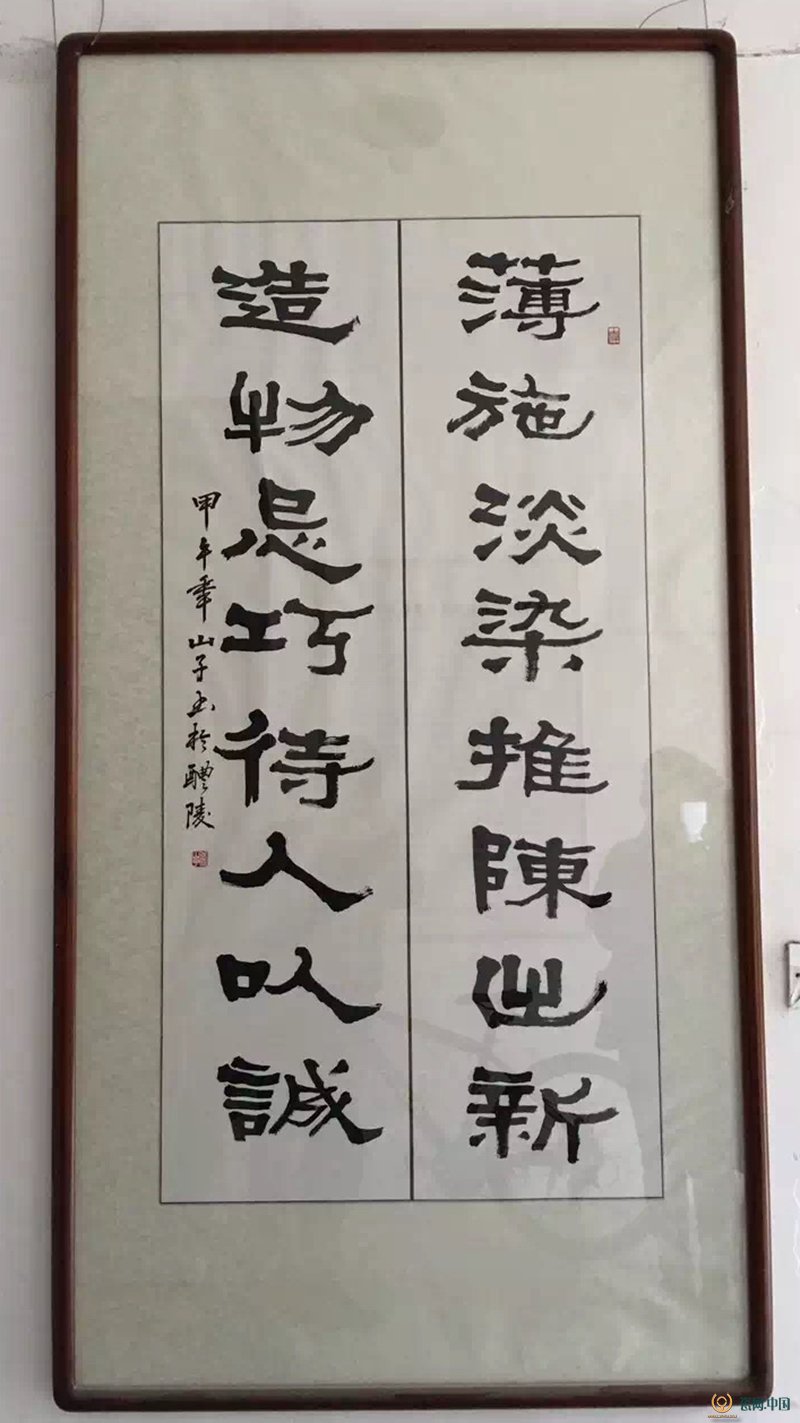 薄施淡染推陳出新
造物忌巧待人以誠
甲午年山子书於醴陵